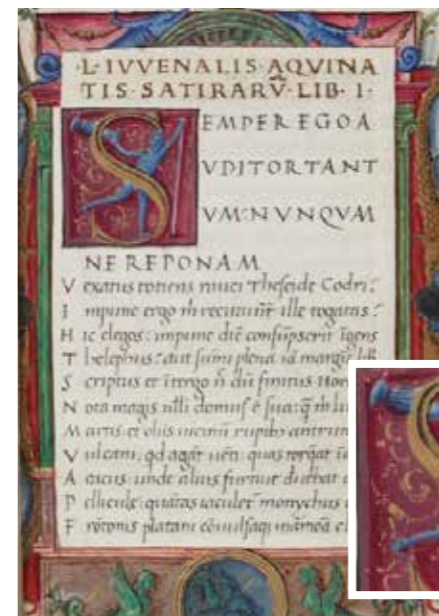 ·L·IVVENALIS·AQVINA
TIS·SATIRARV̄·LIB·I·
SEMPER EGO A
VDITOR TANT
VM: NVNQVAM
NE REPONAM
Vexatus totiens rauci Theseide Codri:
Impune ergo m̄ recitauīt ille togatas:
Hic elegos: impune diē consūpserit īgens
Thelephus: aut sūmi plena iā margīe
Scriptus et ītergo n̄ dū finitus
Nota magis nulli domus ē sua q̄ m̄
Martis et eoliis uicinū rupibꝰ antrum
Vulcani. qd agāt uēti quas torqāt
Aeacus. unde alius furtiue
Pelliculę: quātas iaculet̄ monychus
Frōtonis platani cōuulsaqꝫ